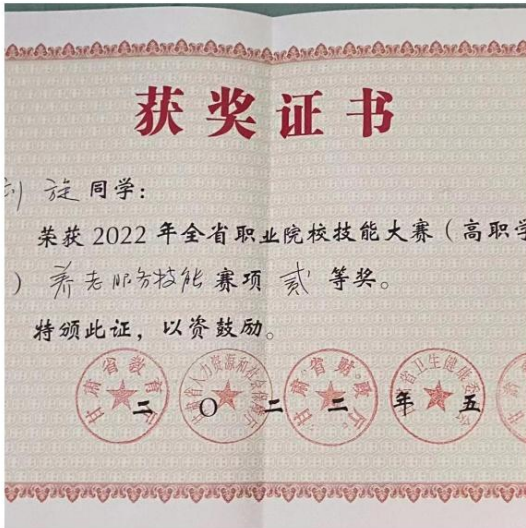 获奖证书
刘 旋 同学：
荣获 2022 年全省职业院校技能大赛（高职学
）养老服务技能 赛项 贰 等奖。
特颁此证，以资鼓励。
甘肃省教育厅 甘肃省人力资源和社会保障厅 甘肃省财政厅 甘肃省卫生健康委员会
二〇二二年五